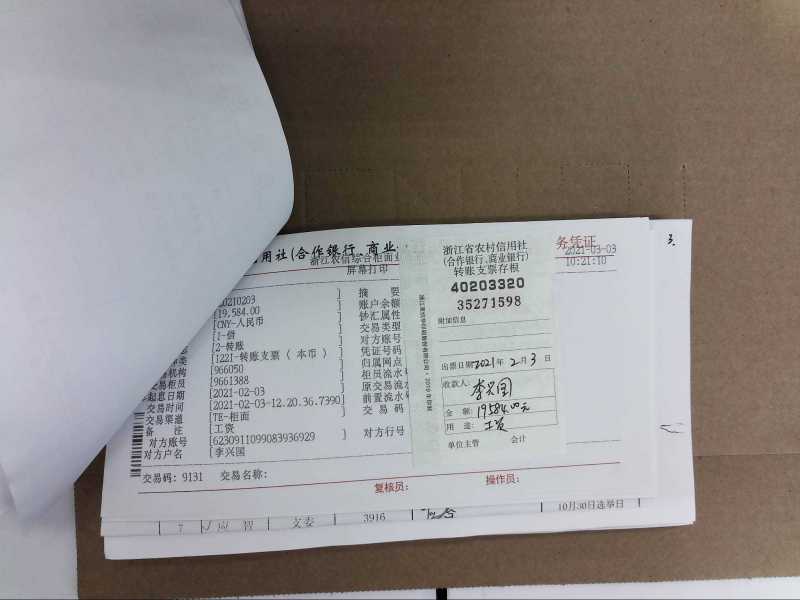 用社(合作银行、商业
务凭证
浙江农信综合柜面业
2021-03-03
屏幕打印
10:21:10
20210203 ] 摘 要
[19,584.00 ] 账户余额
[CNY-人民币 ] 钞汇属性
[1-借 ] 交易类型
[2-转账 ] 对方账号
[122I-转账支票(本币) ] 凭证号码
[966050 ] 归属网点
交易柜员 [9661388 ] 柜员流水
起息日期 [2021-02-03 ] 原交易流水
交易时间 [2021-02-03-12.20.36.7390] 前置流水
交易渠道 [TE-柜面 ] 交 易 码
备 注 [工资
对方账号 [6230911099083936929 ] 对方行号
对方户名 [李兴国
交易码: 9131 交易名称:
复核员: 操作员:
浙江省农村信用社
(合作银行、商业银行)
转账支票存根
40203320
35271598
附加信息
出票日期 2021年 2月 3 日
收款人:
李兴国
金 额: 19584.00元
用 途: 工资
单位主管 会计
3.
7
文委
3916
10月30日选举日